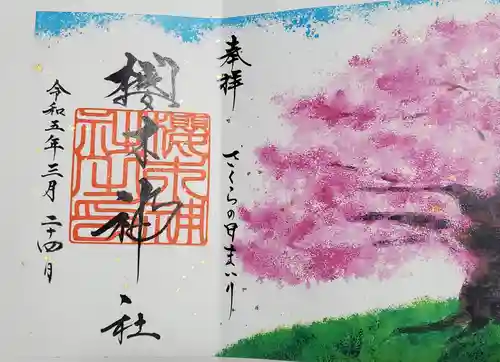 奉拝
さくらの日まいり
櫻木神社
櫻木神
社之印
令和五年三月二十四日